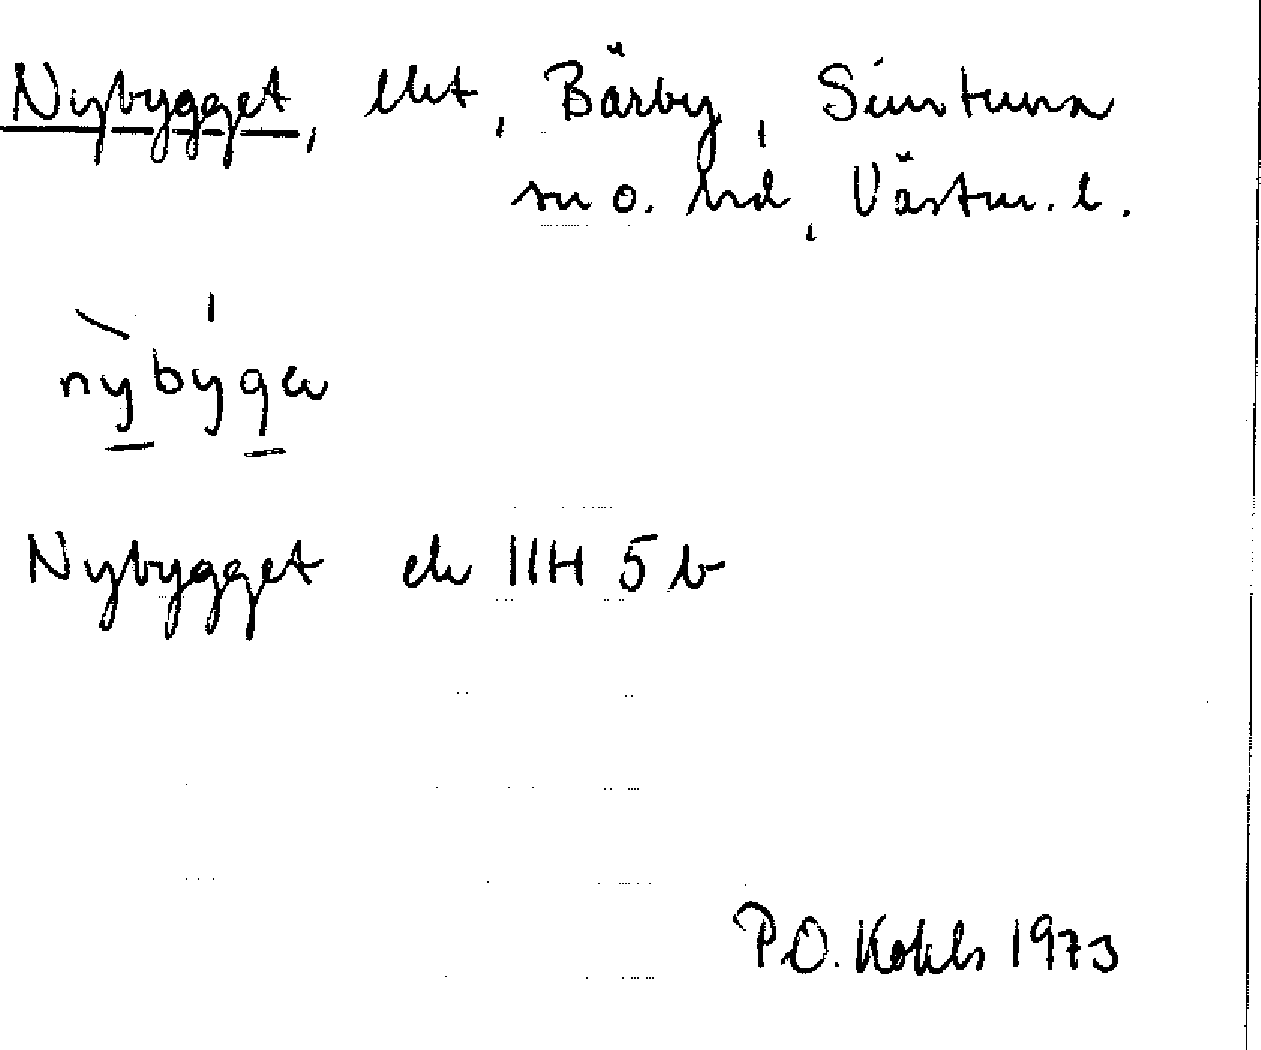 Nybygget, lht, Bärby, Simtuna
sn o. hd, Västm. l.
nybyga
Nybygget ek 11H 5b
P.O. Kohls 1973